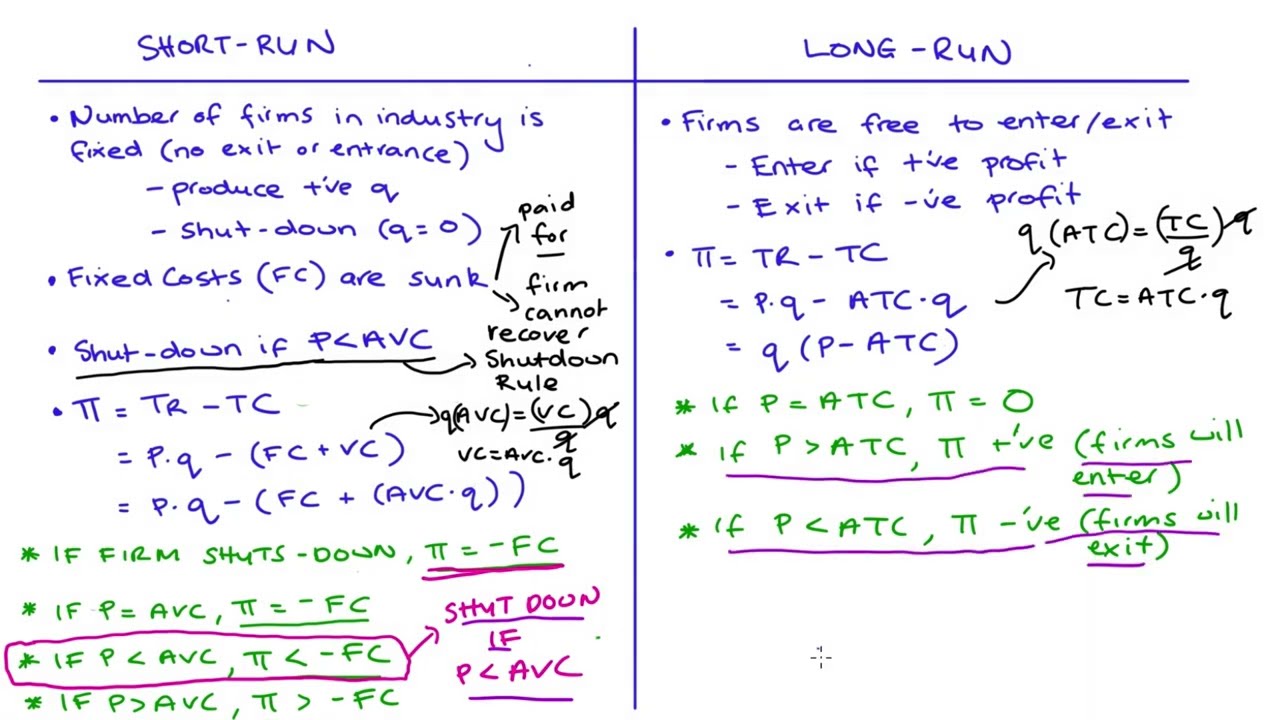 SHORT-RUN
• Number of firms in industry is
fixed (no exit or entrance)
- produce +'ve q
- shut-down (q = 0)
• Fixed Costs (FC) are sunk
paid
for
firm
cannot
recover
• Shut-down if P < AVC
Shutdown
Rule
• π = TR - TC
= P·q - (FC + VC)
= P·q - (FC + (AVC·q))
q(AVC) = (VC)q
q
VC = AVC·q
* IF FIRM SHUTS-DOWN, π = -FC
* IF P = AVC, π = -FC
* IF P < AVC, π < -FC
* IF P > AVC, π > -FC
SHUT DOWN
IF
P < AVC
LONG-RUN
• Firms are free to enter/exit
- Enter if +'ve profit
- Exit if -'ve profit
• π = TR - TC
= P·q - ATC·q
= q (P - ATC)
q (ATC) = (TC) q
q
TC = ATC·q
* If P = ATC, π = 0
* If P > ATC, π +'ve (firms will
enter)
* If P < ATC, π -'ve (firms will
exit)